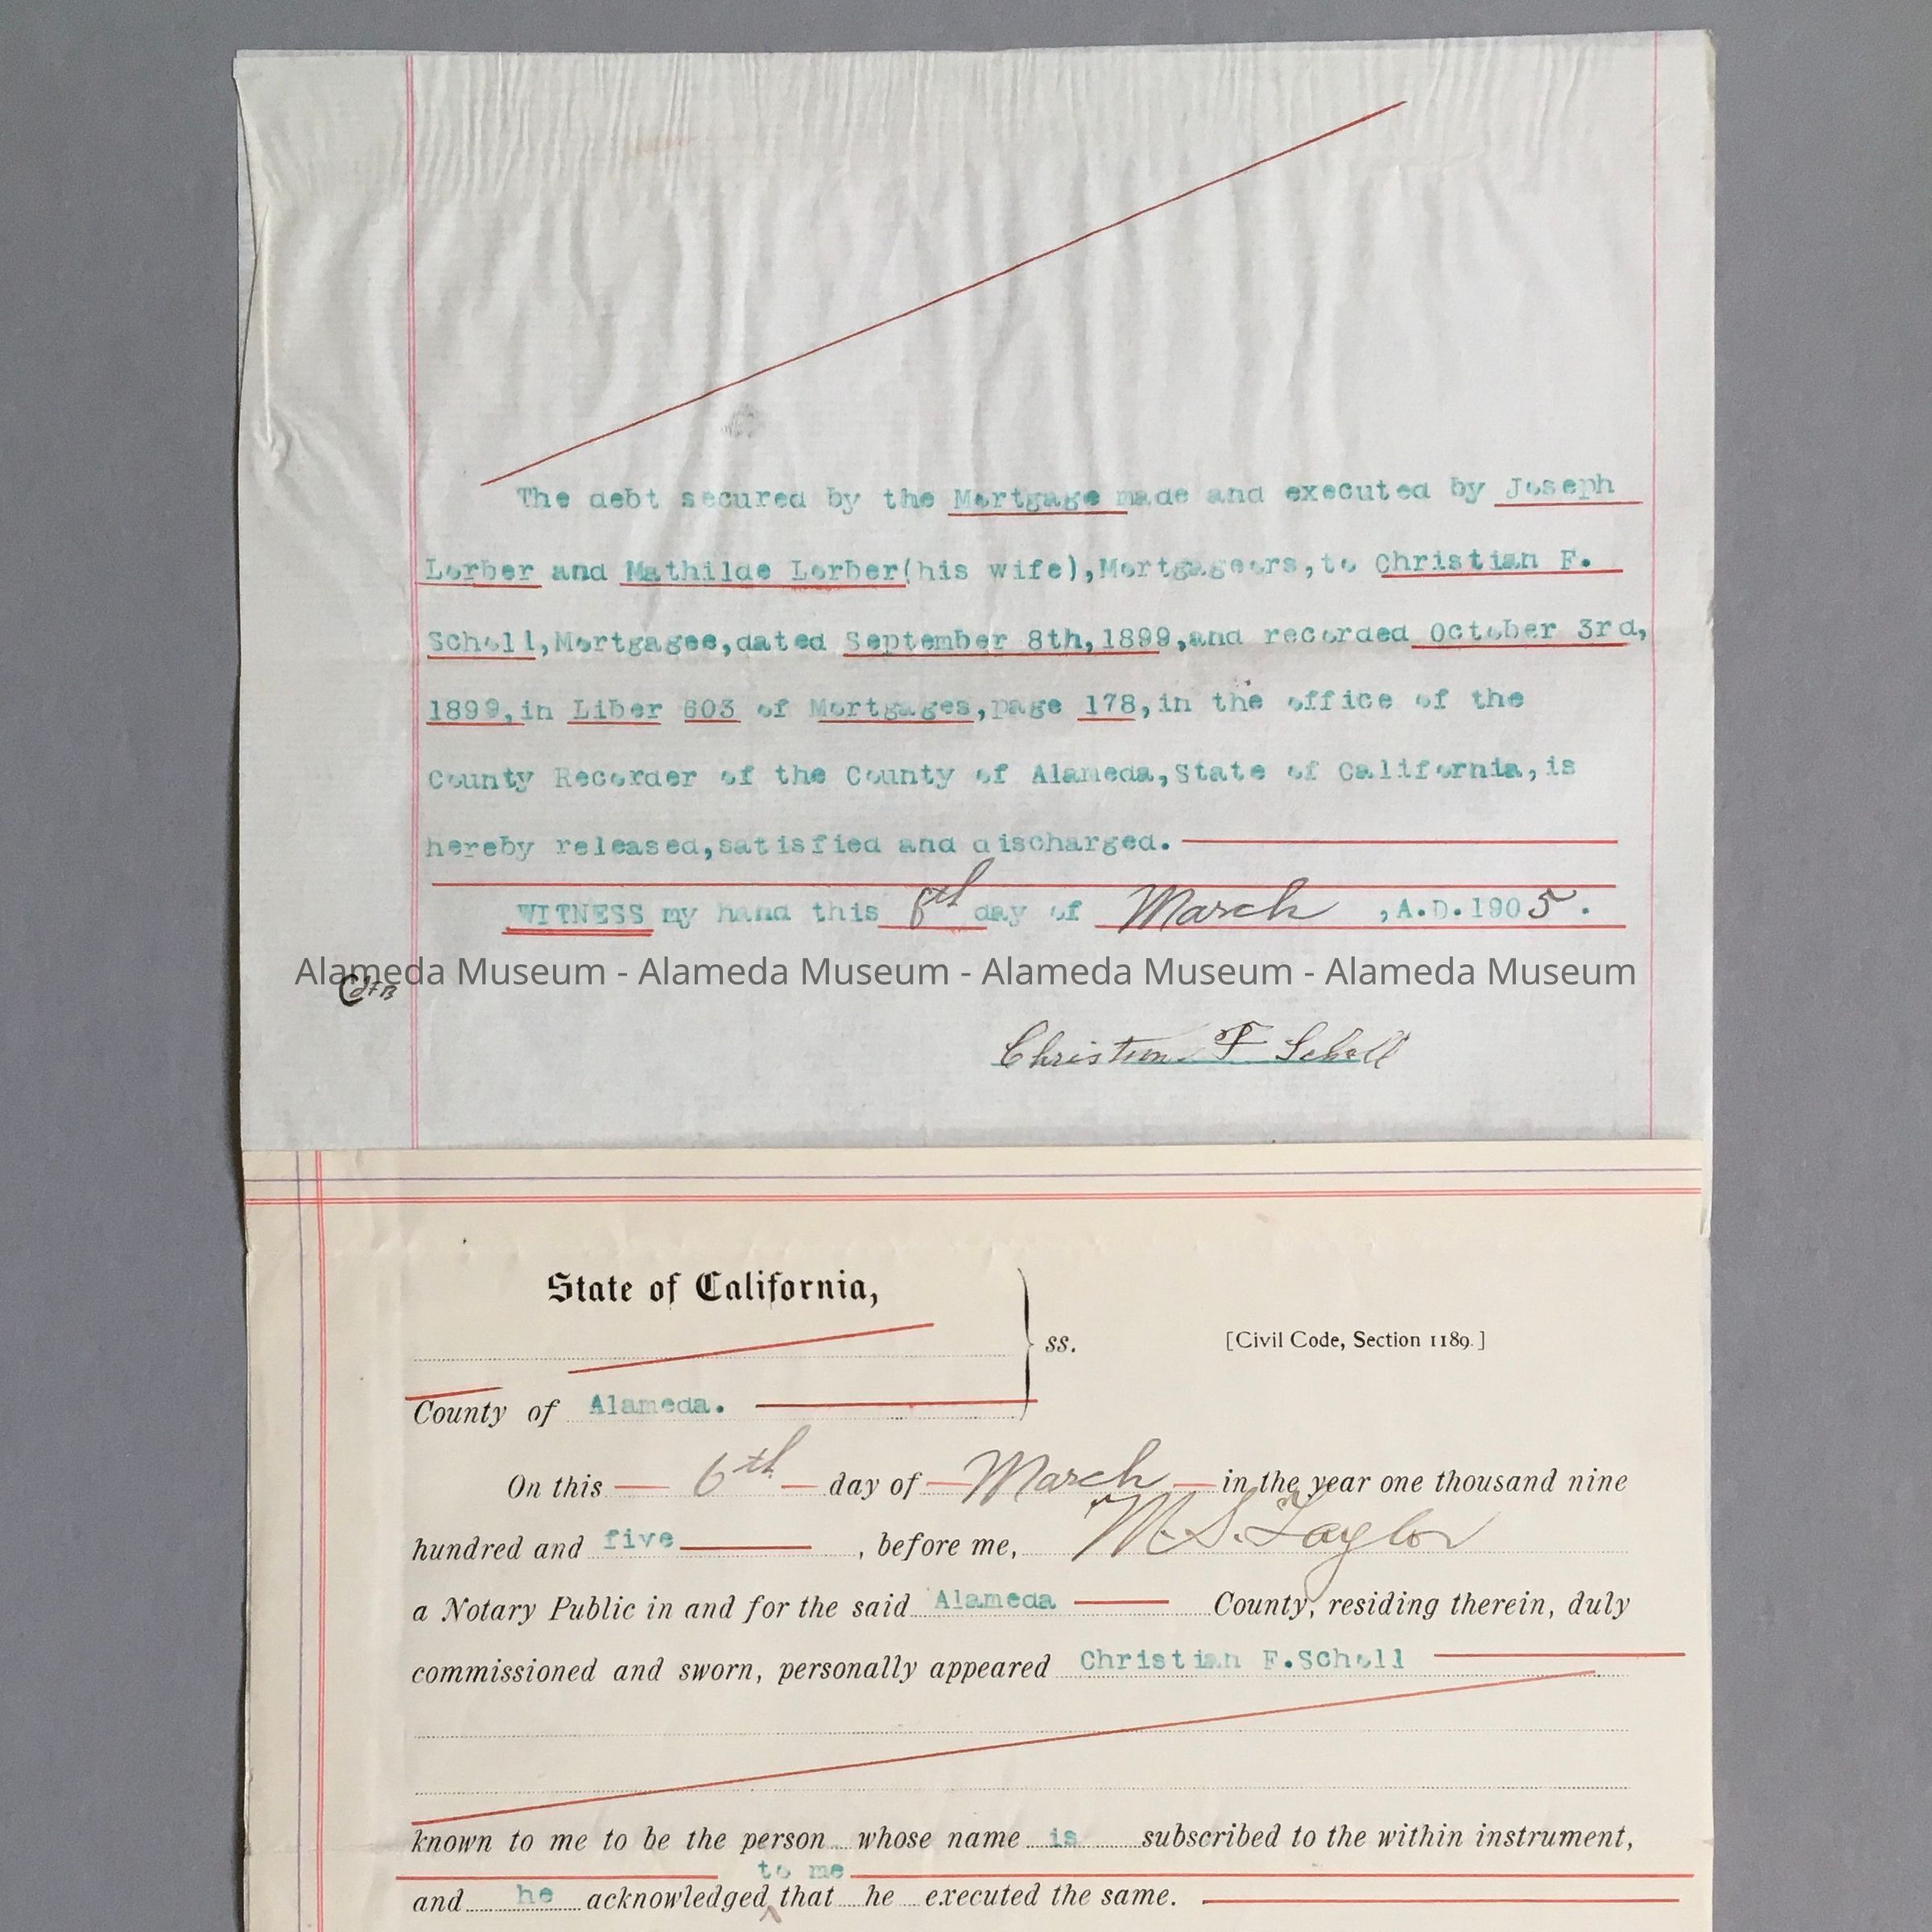 The debt secured by the Mortgage made and executed by Joseph
Lorber and Mathilde Lorber(his wife),Mortgageors,to Christian F.
Scholl,Mortgagee,dated September 8th,1899,and recorded October 3rd,
1899,in Liber 603 of Mortgages,page 178,in the office of the
County Recorder of the County of Alameda,State of California,is
hereby released,satisfied and discharged.
WITNESS my hand this 6th day of March ,A.D.1905.
Alameda Museum - Alameda Museum - Alameda Museum - Alameda Museum
Christian F Scholl
State of California,
ss.
[Civil Code, Section 1189.]
County of Alameda.
On this 6th day of March in the year one thousand nine
hundred and five , before me, M.S. Taylor
a Notary Public in and for the said Alameda County, residing therein, duly
commissioned and sworn, personally appeared Christian F.Scholl
known to me to be the person whose name is subscribed to the within instrument,
to me
and he acknowledged that he executed the same.